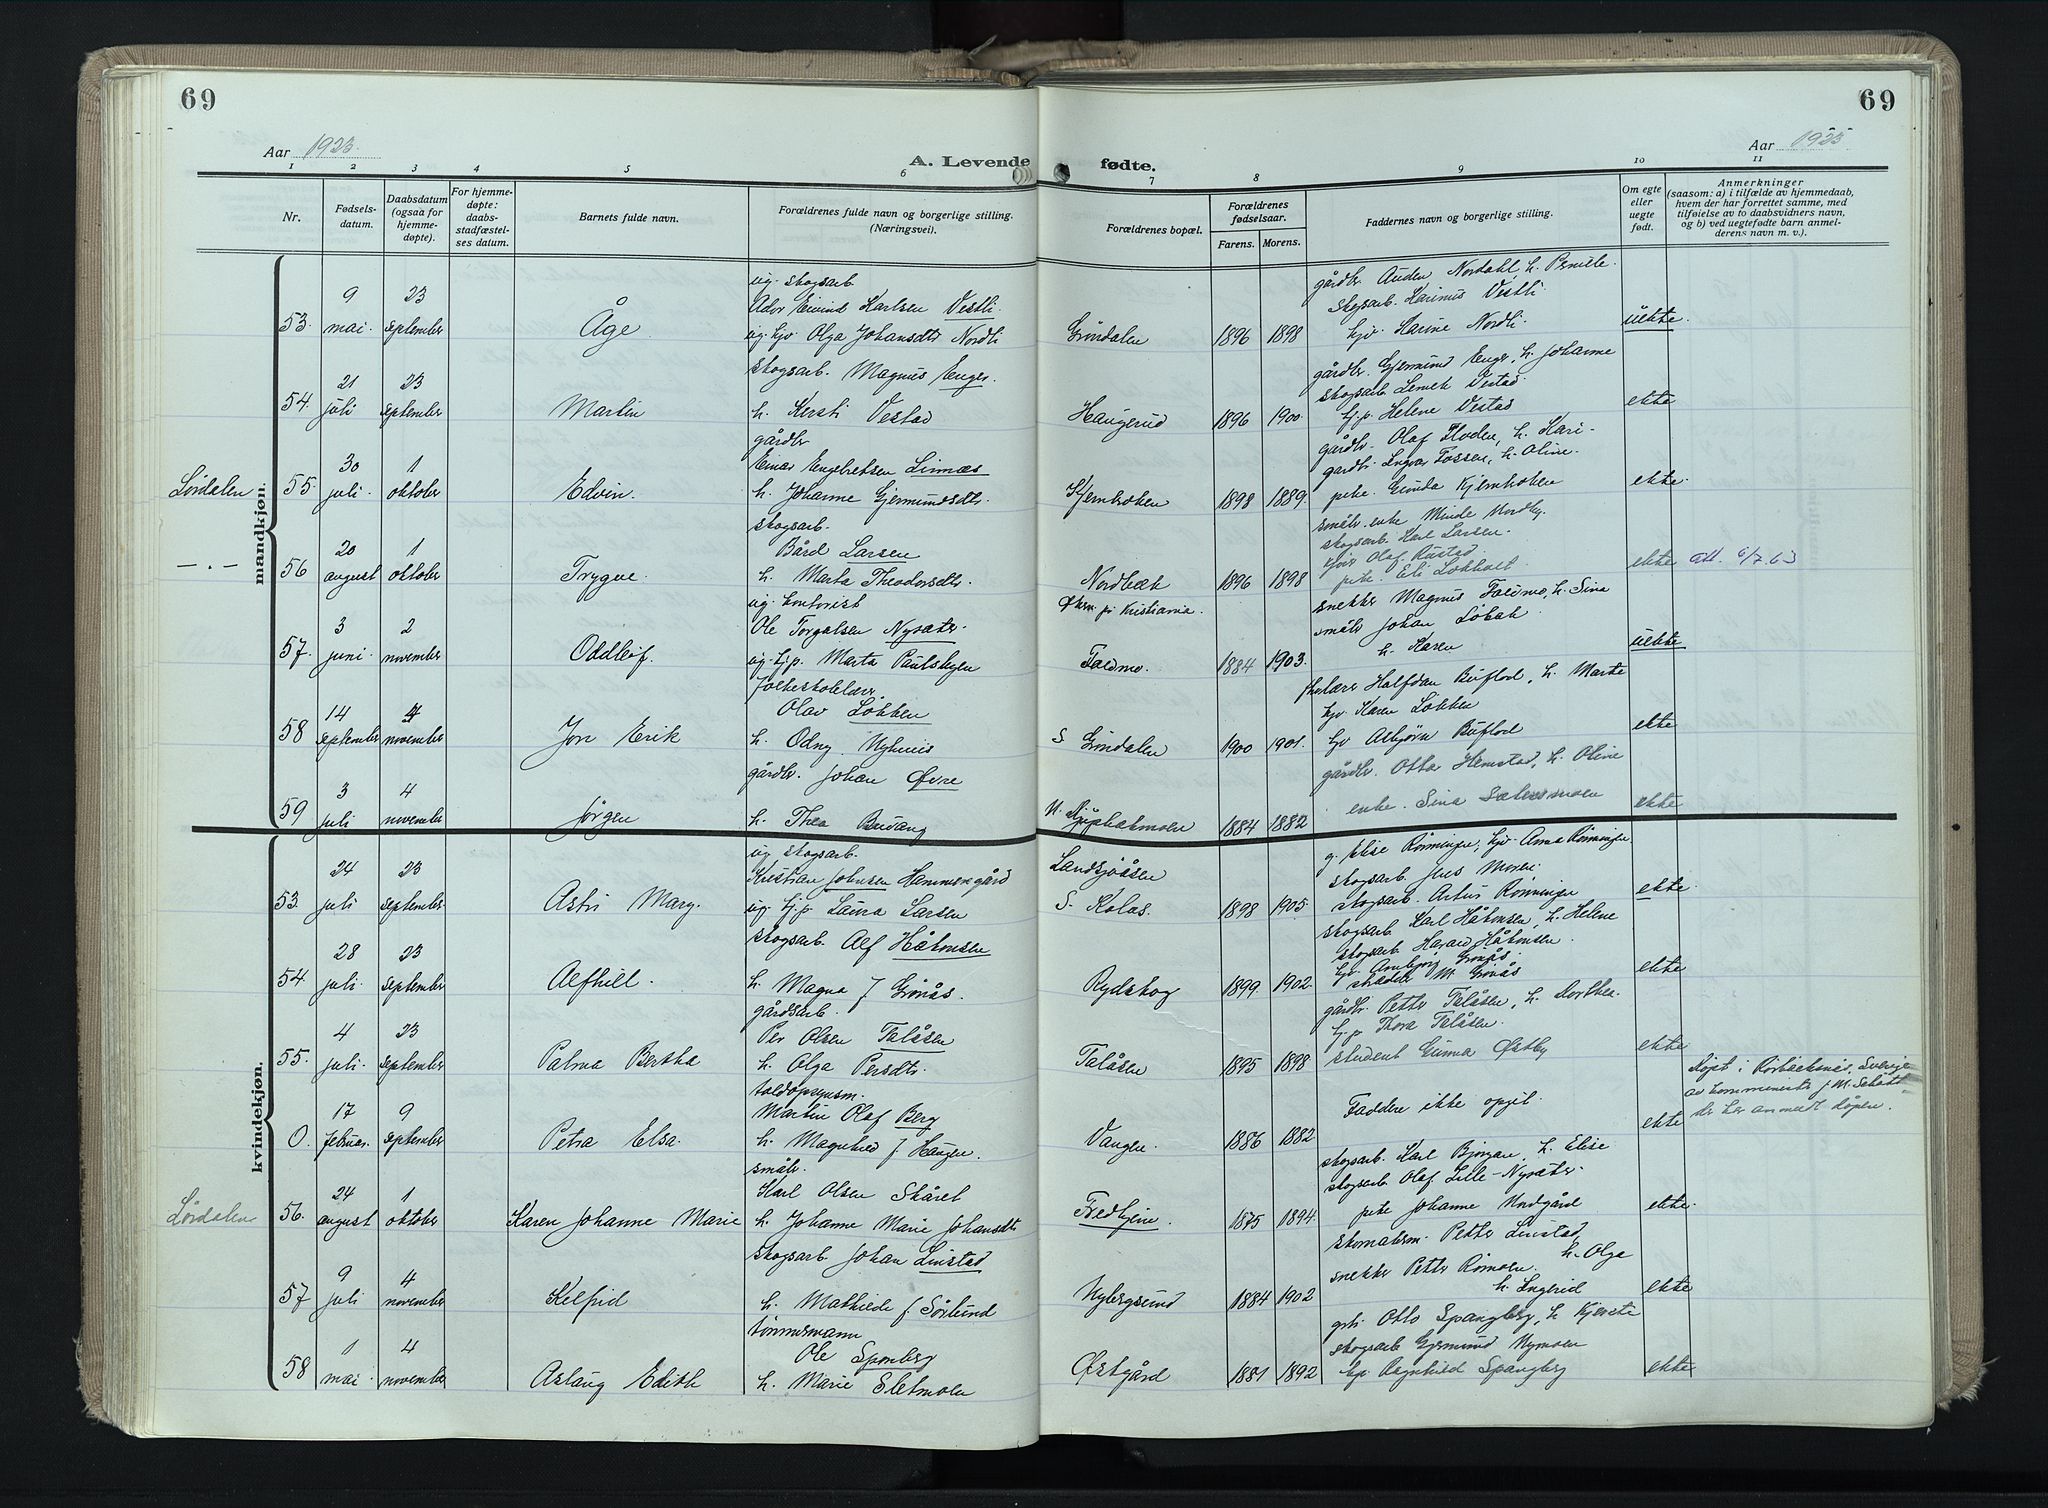 69
69
Aar 1923.
Aar 1923
A. Levende fødte.
1 2 3 4 5 6 7 8 9 10 11
Nr.
Fødselsdatum.
Daabsdatum (ogsaa for hjemmedøpte).
For hjemmedøpte: daabsstadfæstelses datum.
Barnets fulde navn.
Forældrenes fulde navn og borgerlige stilling. (Næringsvei).
Forældrenes bopæl.
Forældrenes fødselsaar.
Farens. Morens.
Faddernes navn og borgerlige stilling.
Om egte eller uegte født.
Anmerkninger
(saasom: a) i tilfælde av hjemmedaab, hvem der har forrettet samme, med tilføielse av to daabsvidners navn, og b) ved uegtefødte barn anmelderens navn m. v.).
mandkjøn.
53. 9 mai. 23 september Åge
ug. skogsarb.
Eivind Karlsen Vestli.
ug. hjv Olga Johansdtr Nordli
Grøndalen 1896 1898
gårdbr Auden Nordahl, h. Pernille.
skogsarb. Karinus Vestli.
hjv. Karine Nordli.
uekte.
54. 21 juli 23 september Martin
skogsarb. Magnus Enger.
h. Kersti Vestad
Haugerud 1896 1900
gårdbr. Gjermund Enger, h. Johanne
skogsarb Lemek Vestad
hjp Helene Vestad
ekte
Lørdalen 55. 30 juli. 1 oktober Edvin.
gårdbr
Einar Engebretsen Linnæs
h. Johanne Gjermundsdtr.
1898 1889.
gårdbr. Olaf Floden, h. Kari.
gardbr. Ingvar Fossen, h. Oline.
pike. Gunda
ekte.
-"- 56 20 august 1 oktober Trygve.
skogsarb.
Bård Larsen
h. Marta Theodorsdtr.
Nordbæk 1896 1898
småbr. enke Minde Nordby.
skogsarb Karl Larsen.
Olaf Rustad
pike. Eli
ekte
att. 6/7.63
57. 3 juni. 2 november Oddleif.
ug. kontorist
Ole Torgalsen Nysæter
ug. hjp. Marta Paulshagen
pr Kristiania.
Faldmo. 1884 1903.
snekker Magnus Faldmo, h. Sina
småbr Johan Løbak
h. Karen
uekte
58 14 september 4 november Jon Erik
folkeskolelærer
Olav Løkken
h. Odny Nyhuus
S Grøndalen 1900 1901.
Halfdan Buflod, h. Marte
hjv Karen Løkken
hjv Asbjørn Buflod
ekte
59 3 juli 4 november Jørgen
gårdbr. Johan Øvre
h. Thea Budang
N. 1884 1882
gårdbr. Otto Hemstad, h. Oline
enke. Sina
ekte
kvindekjøn.
53 24 juli 23 september Astri Mary.
ug skogsarb.
Kristian Johnsen Hammersgård
ug. hj.p. Laura Larsen
Landsjøåsen
S. Kolås. 1898 1905.
g. Elise Rønningen, hjv Anna Rønningen
skogsarb. Jens Moren
skogsarb. Artur Rønningen
ekte.
54. 28 juli. 23 september Alfhill.
skogsarb. Alf Håkonsen
h. Magna f Grønås.
Rydskog 1899. 1902.
skogsarb Karl Håkonsen, h. Helene
skogsarb Harald Håkonsen.
hjv Grønås.
skrædder M. Grønås
ekte
55. 4 juli. 23 september Palma Bertha
gårdsarb.
Per Olsen Talåsen
h. Olga Persdtr.
Talåsen 1895 1898
gårdbr. Petter Talåsen, h. Dorthea.
hj.p Thora Talåsen.
student Gunna Østby
ekte
0. 17 februar. 9 september Petra Elsa.
toldopsynsm.
Martin Olaf Berg
h. Magnhild f Haugen.
Vangen. 1886 1882
Faddere ikke opgit.
ekte
Døpt i Sverige
av
her anmedt dåpen.
Lørdalen 56. 24 august 1 oktober Karen Johanne Marie
småbr.
Karl Olsen Skåret
h. Johanne Marie Johansdtr
Fredheim. 1875 1894.
skogsarb. Karl Bjørgan, h. Elise
skogsarb Olaf Lille-Nysæter.
pike Johanne Undgård
ekte.
57 9 juli 4 november Kelfrid
skogsarb Johan Linstad
h. Mathilde f Sørlund
Nybergsund 1884 1902
skomakerm. Petter Linstad,
h. Olga
snekker Petter Rømoen.
h. Ingerid
ekte
58 1 mai. 4 november Aslaug Edith
tømmermann
Ole Spanberg
h. Marie Sletmoen
Østgård 1881 1892
Otto Spangberg, h Kjersti
skogsarb Gjermund Nymoen
hjv Ragnhild Spangberg
ekte.